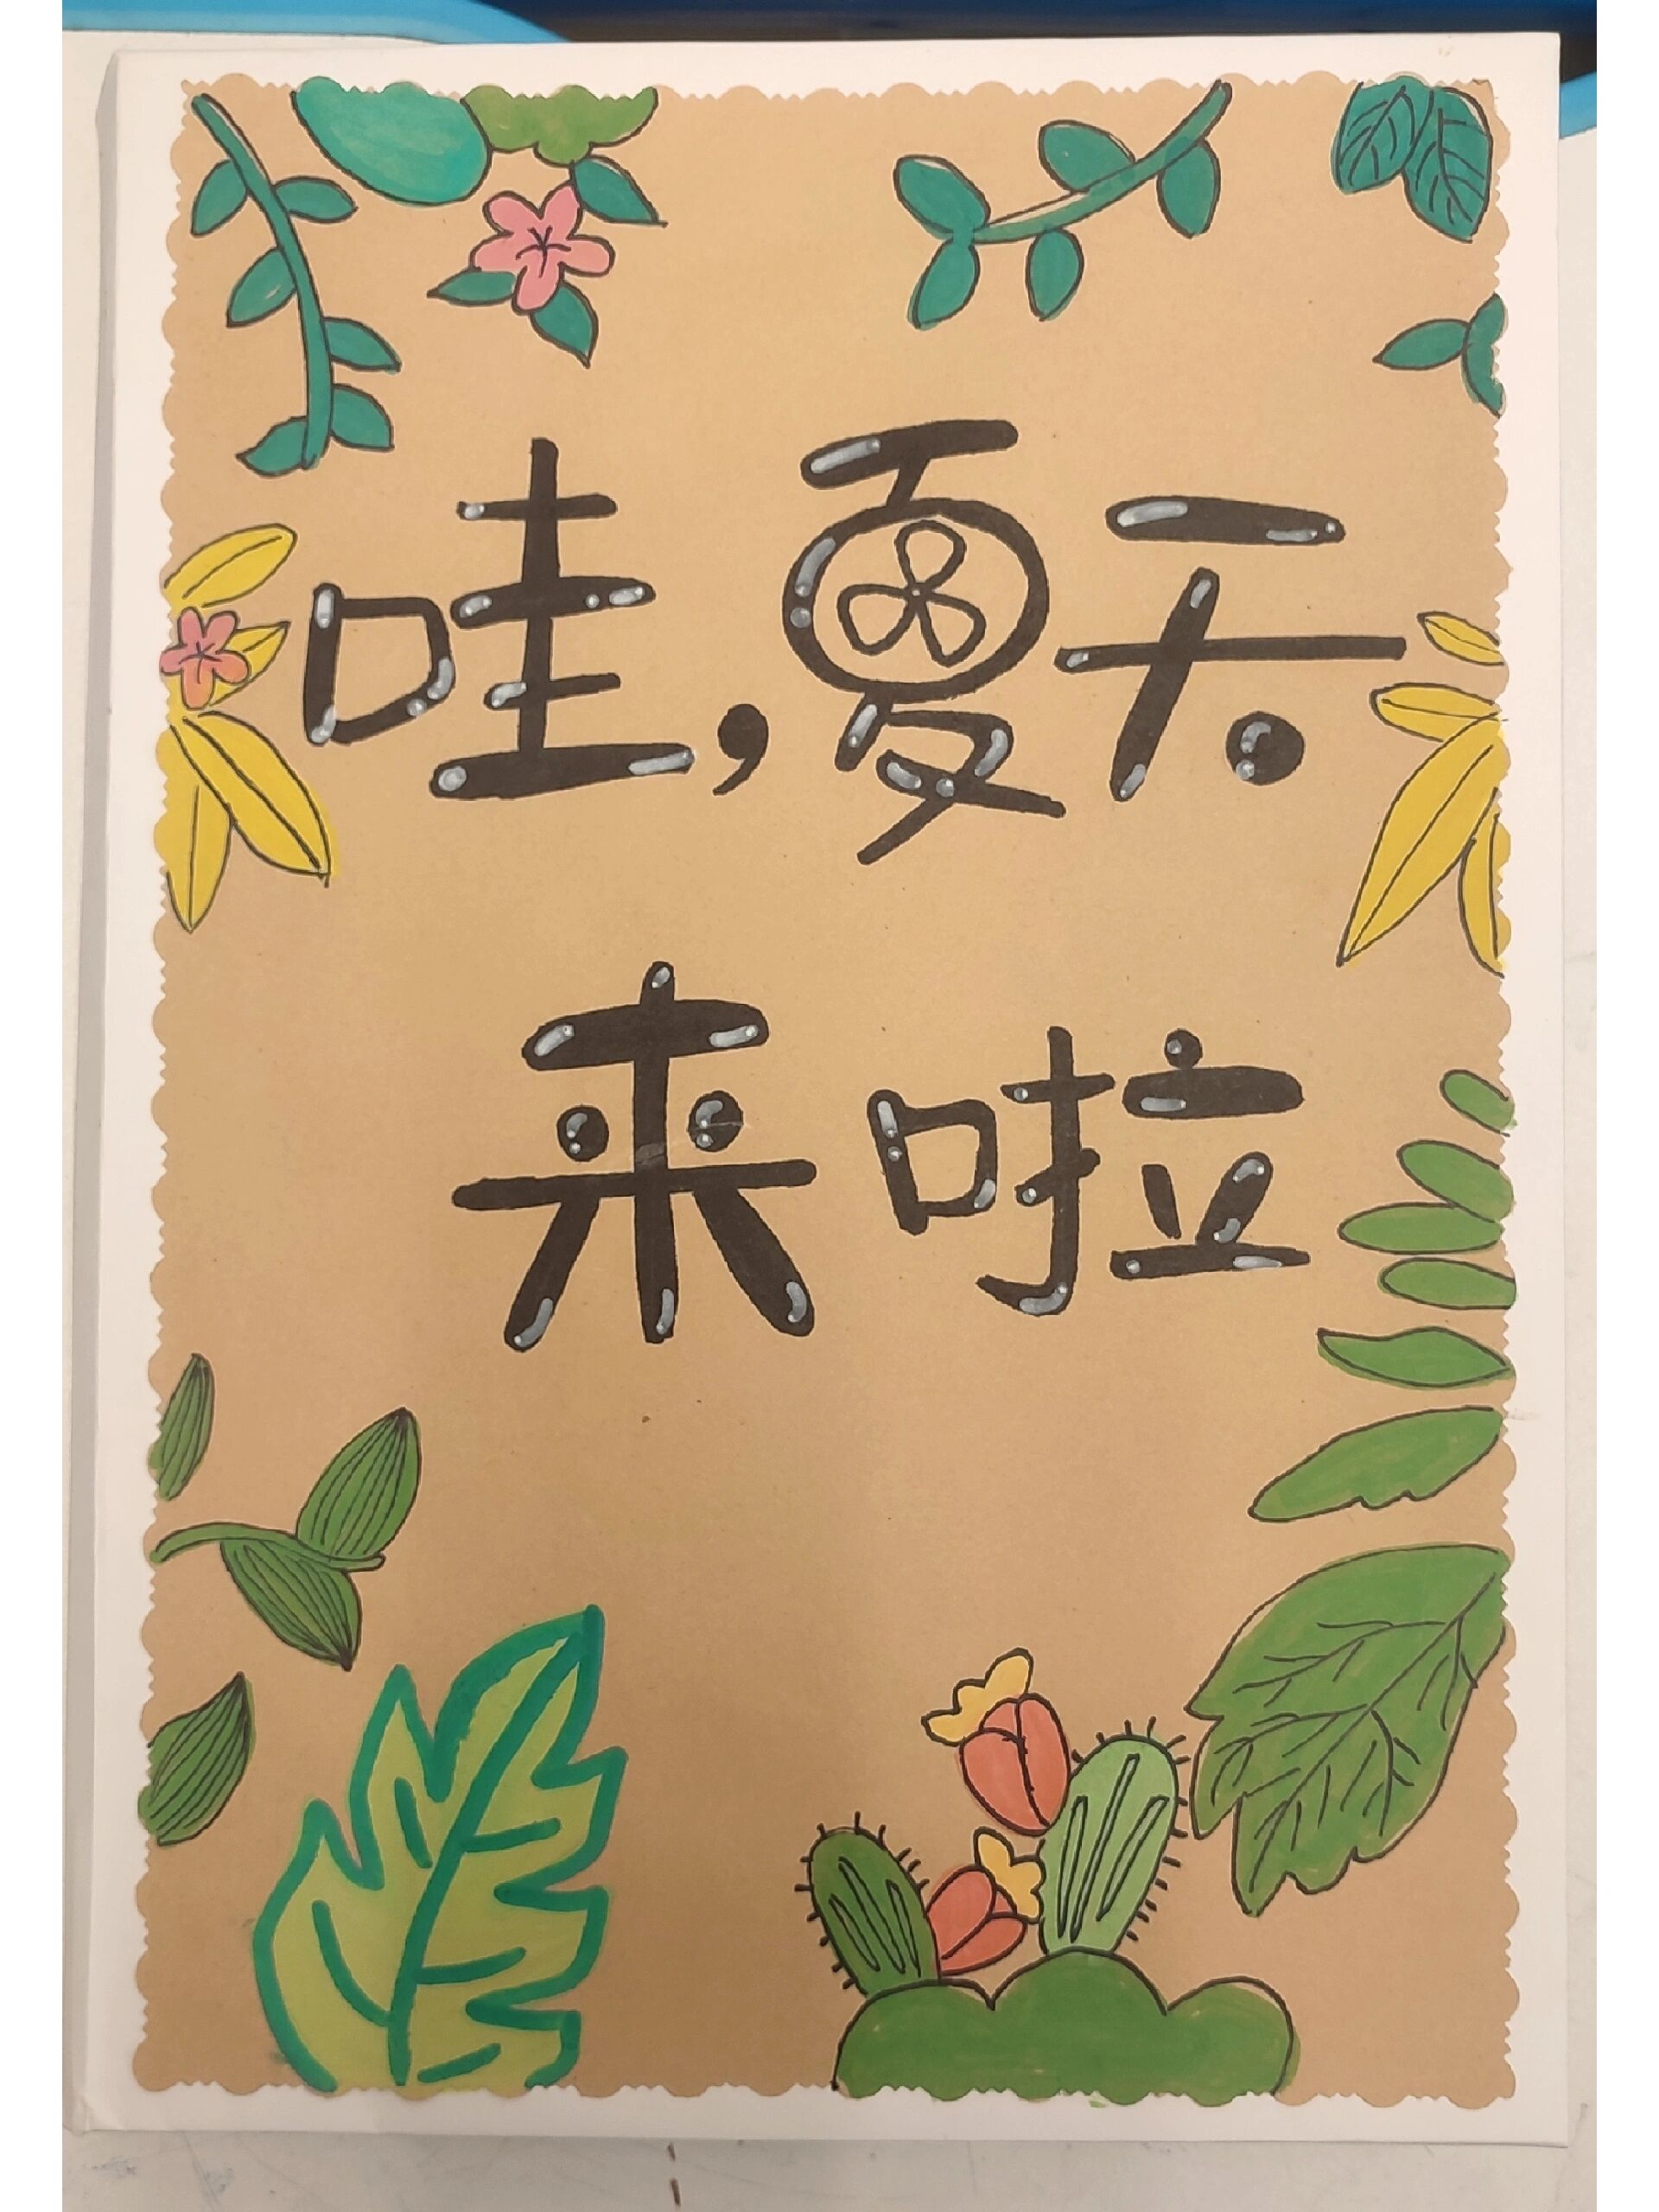 哇,夏天
来啦